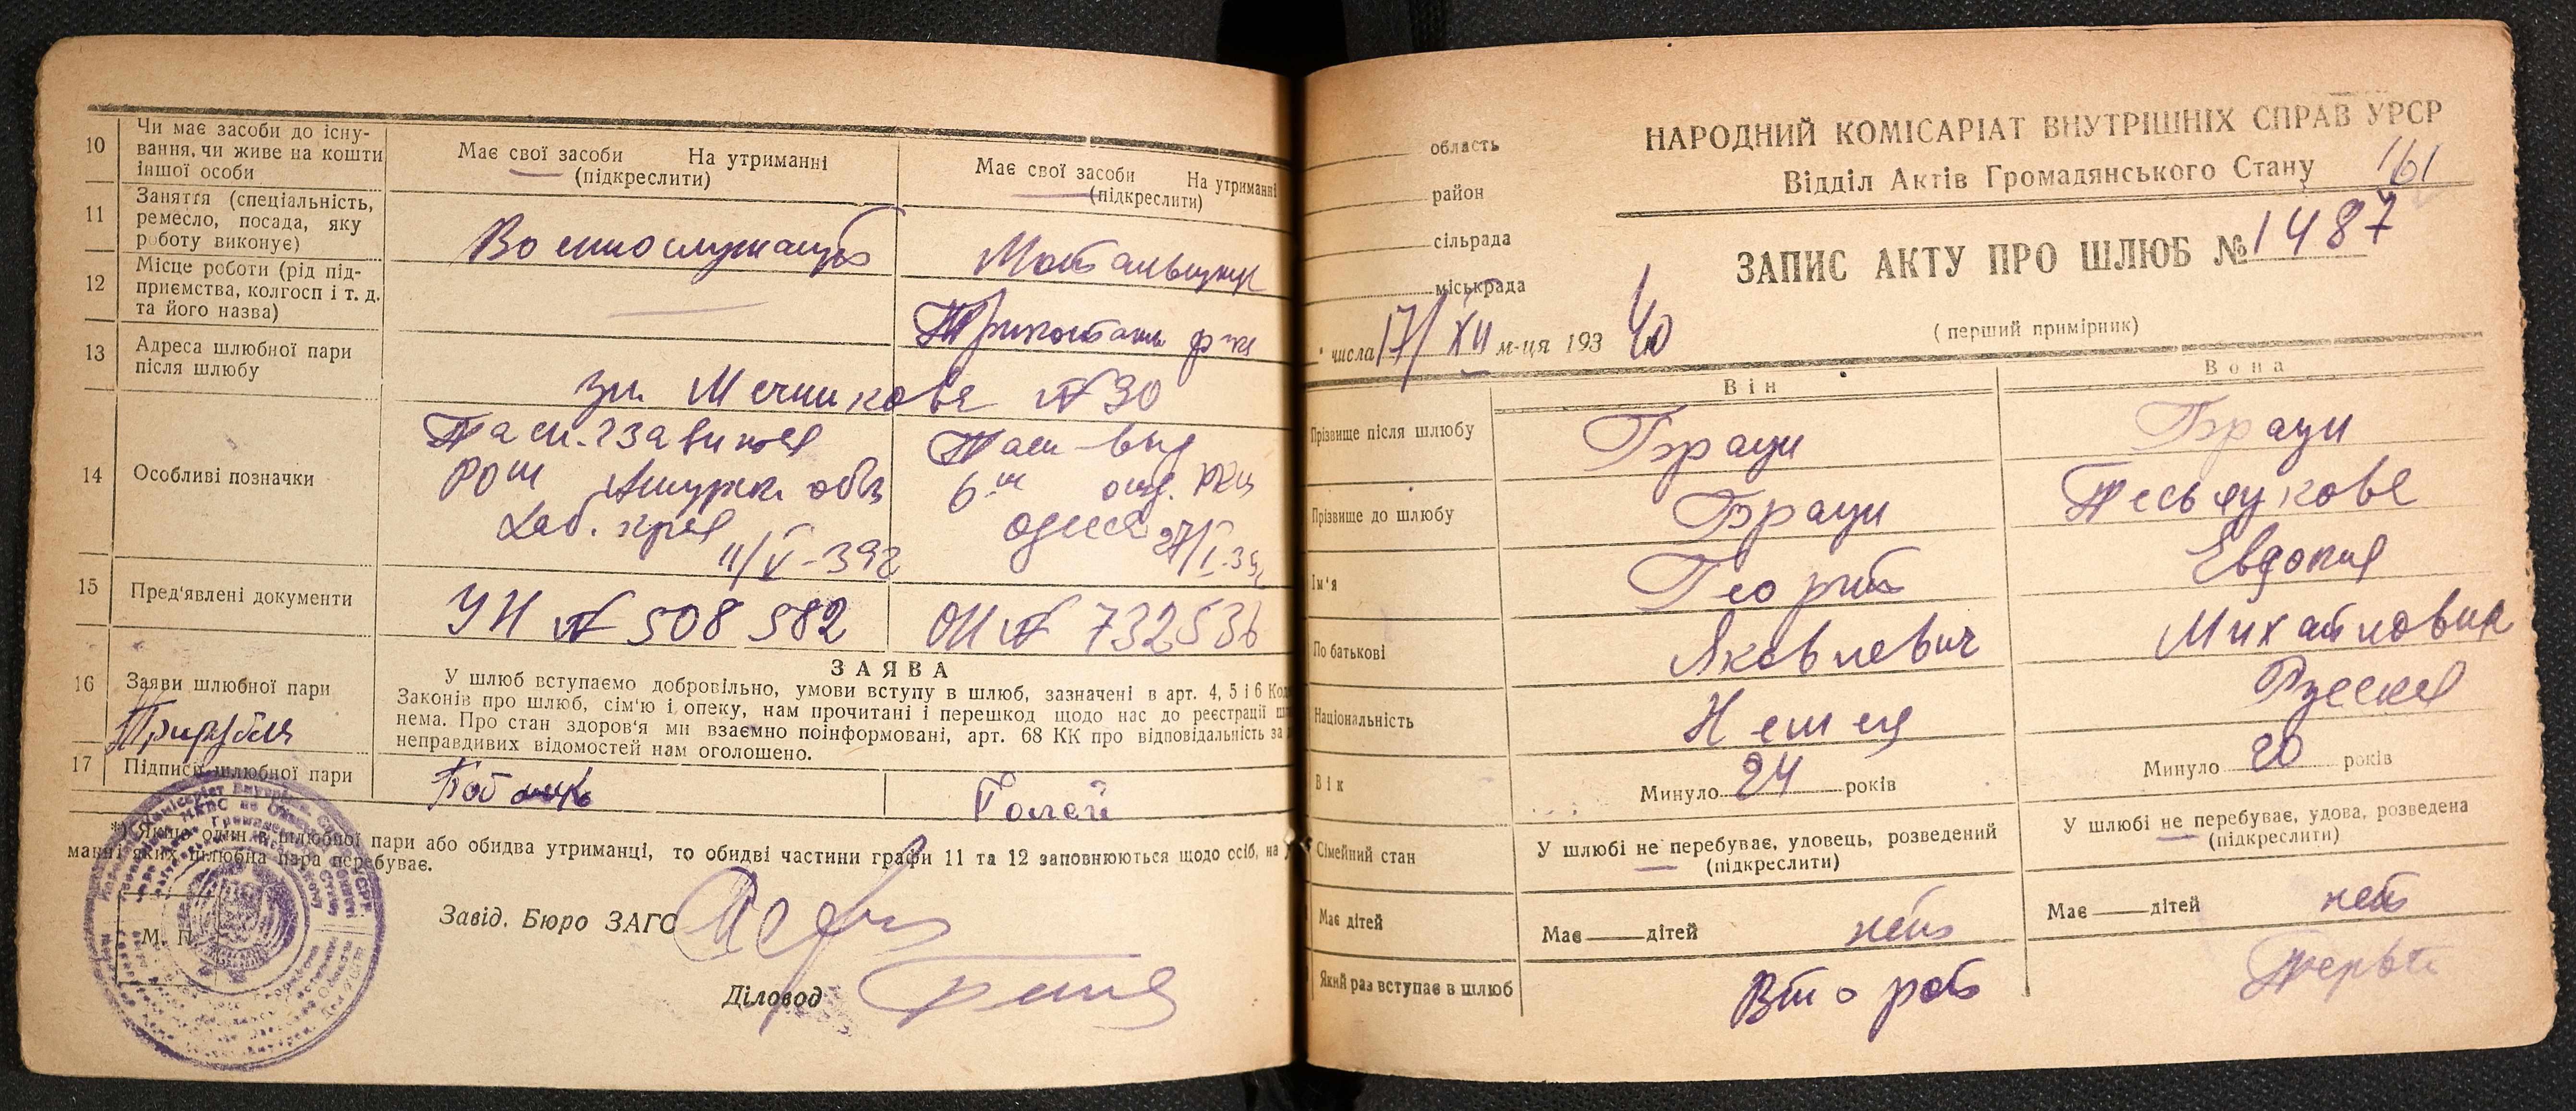 10
Чи має засоби до існу-
вання, чи живе на кошти
іншої особи
Має свої засоби На утриманні
(підкреслити)
Має свої засоби На утриманні
(підкреслити)
11
Заняття (спеціальність,
ремесло, посада, яку
роботу виконує)
Военнослужащий
Мотальщица
12
Місце роботи (рід під-
приємства, колгосп і т. д.
та його назва)
Трикотажн ф-ка
13
Адреса шлюбної пари
після шлюбу
№ 30
14
Особливі позначки
Хаб. края
11/V-39г
6
Одесса 27/I-39г
15
Пред'явлені документи
УН № 508582
ОН № 732536
16
Заяви шлюбної пари
ЗАЯВА
У шлюб вступаємо добровільно, умови вступу в шлюб, зазначені в арт. 4, 5 і 6
Законів про шлюб, сім'ю і опеку, нам прочитані і перешкод щодо нас до реєстрації
нема. Про стан здоров'я ми взаємно поінформовані, арт. 68 КК про відповідальність за
неправдивих відомостей нам оголошено.
17
Підписи шлюбної пари
*) Якщо один з шлюбної пари або обидва утриманці, то обидві частини графи 11 та 12 заповнюються щодо осіб, на
манні яких шлюбна пара перебуває.
М. П.
Завід. Бюро ЗАГС
Діловод
область
район
сільрада
міськрада
числа 17/XII м-ця 193 40
НАРОДНИЙ КОМІСАРІАТ ВНУТРІШНІХ СПРАВ УРСР
Відділ Актів Громадянського Стану
161
ЗАПИС АКТУ ПРО ШЛЮБ № 1487
(перший примірник)
Він
Вона
Прізвище після шлюбу
Браун
Браун
Прізвище до шлюбу
Браун
Ім'я
Георгий
Евдокия
По батькові
Яковлевич
Михайловна
Національність
Немец
Русская
Вік
Минуло 24 років
Минуло 20 років
Сімейний стан
У шлюбі не перебуває, уловець, розведений
(підкреслити)
У шлюбі не перебуває, удова, розведена
(підкреслити)
Має дітей
Має дітей нет
Має дітей нет
Який раз вступає в шлюб
Второй
Первый